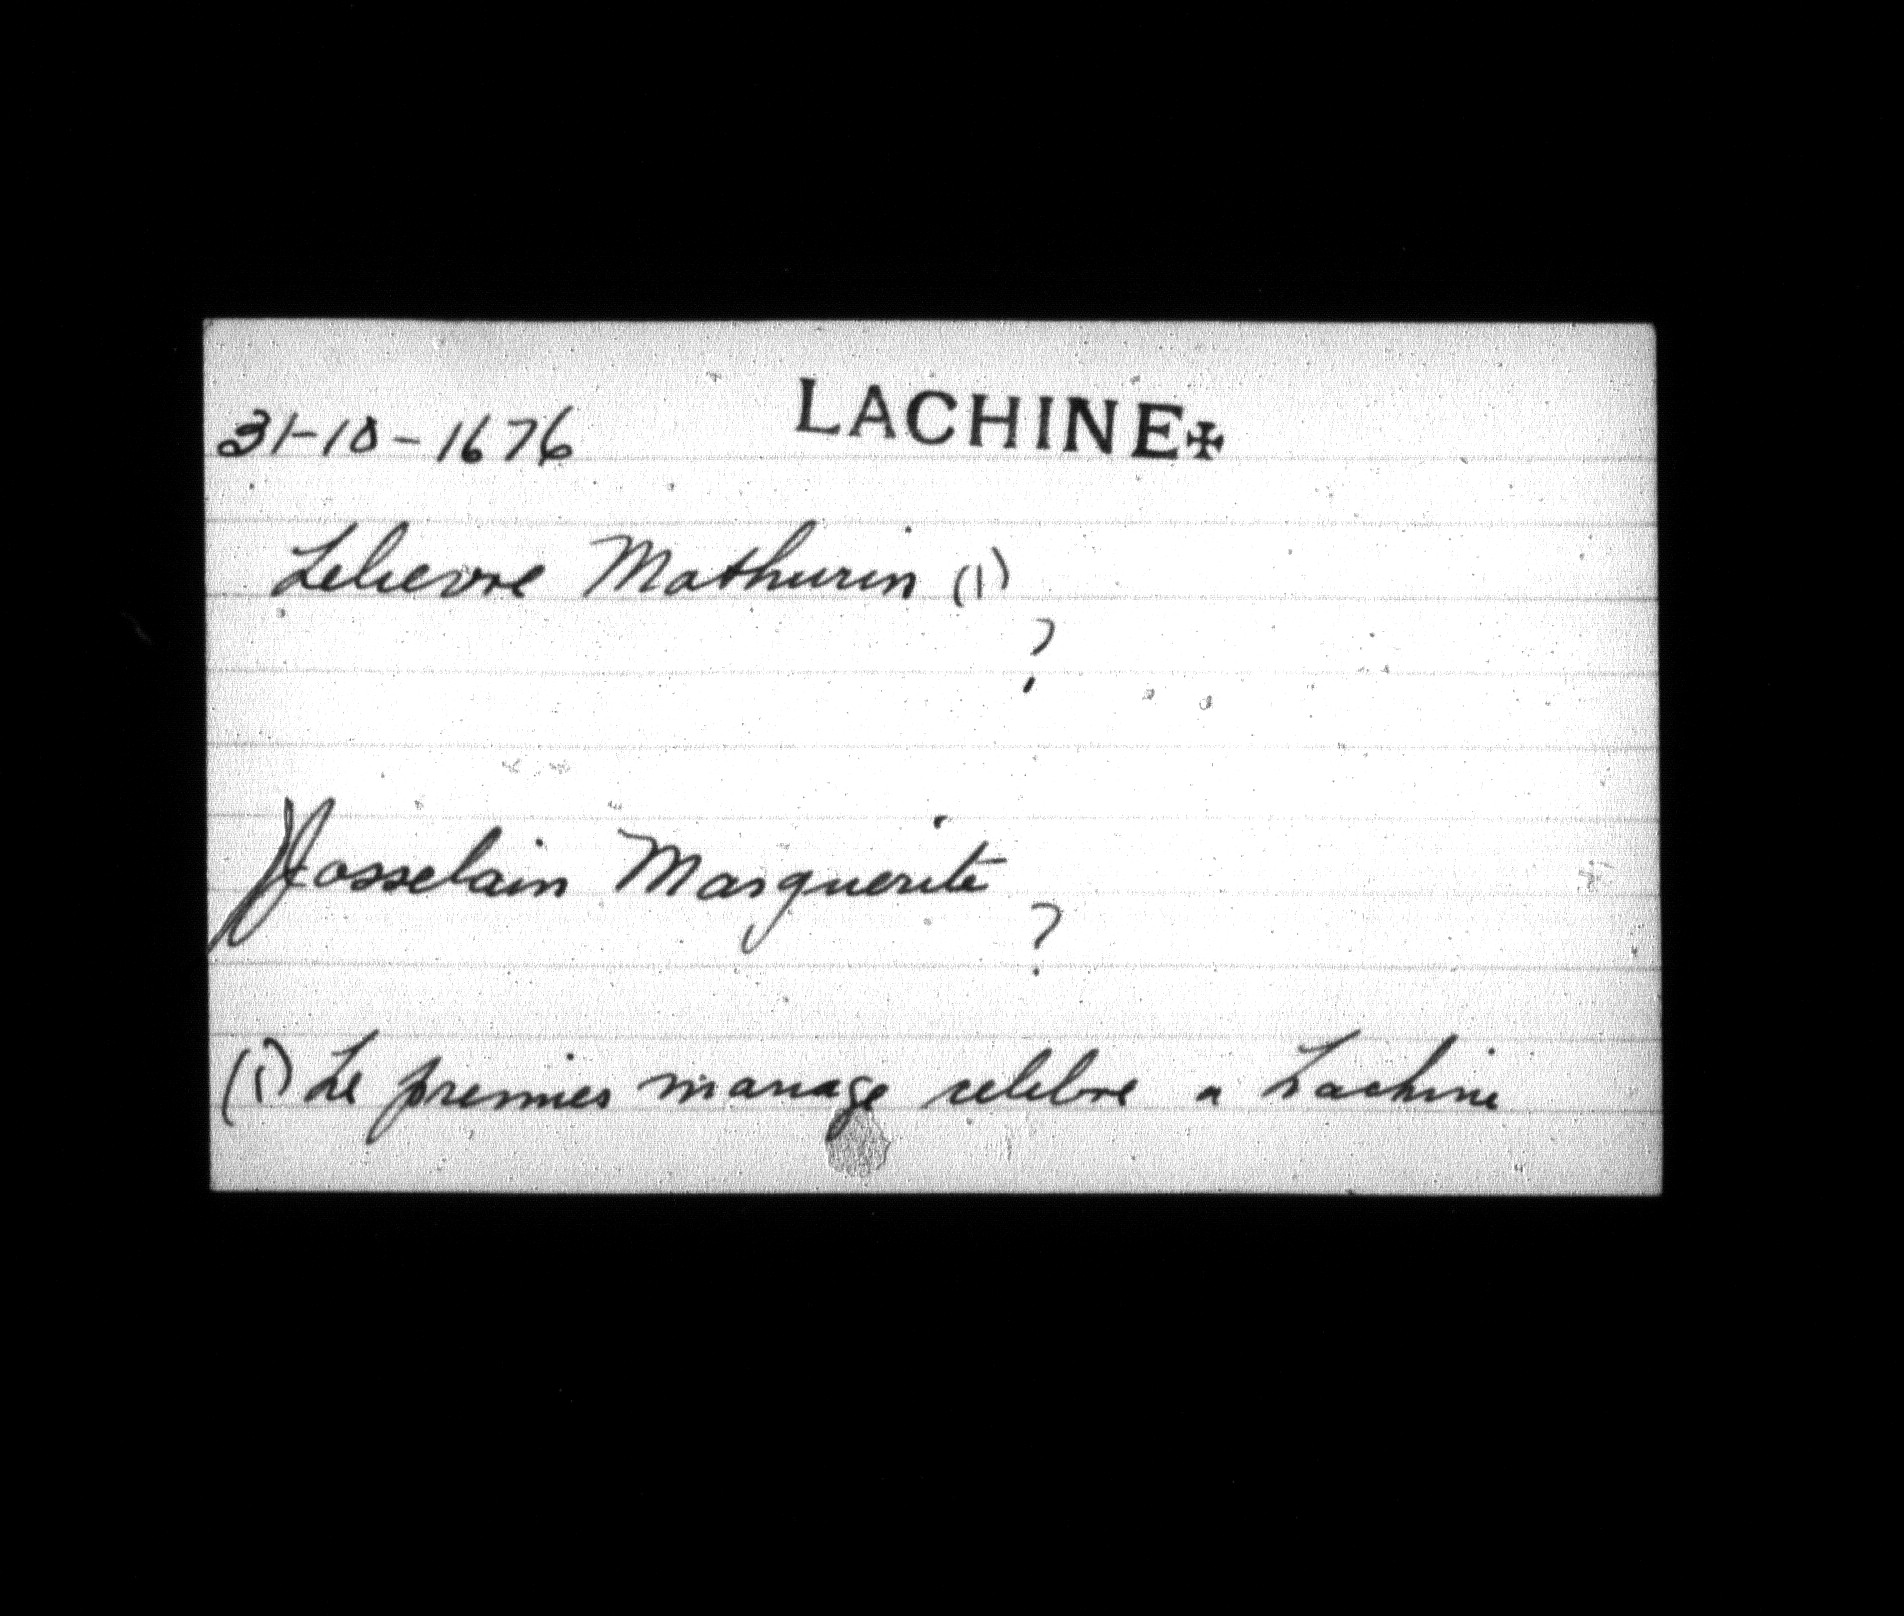 31-10-1676 LACHINE✠
Lelievre Mathurin (1)
?
Josselain Marguerite
?
(1) Le premier mariage celebre a Lachine